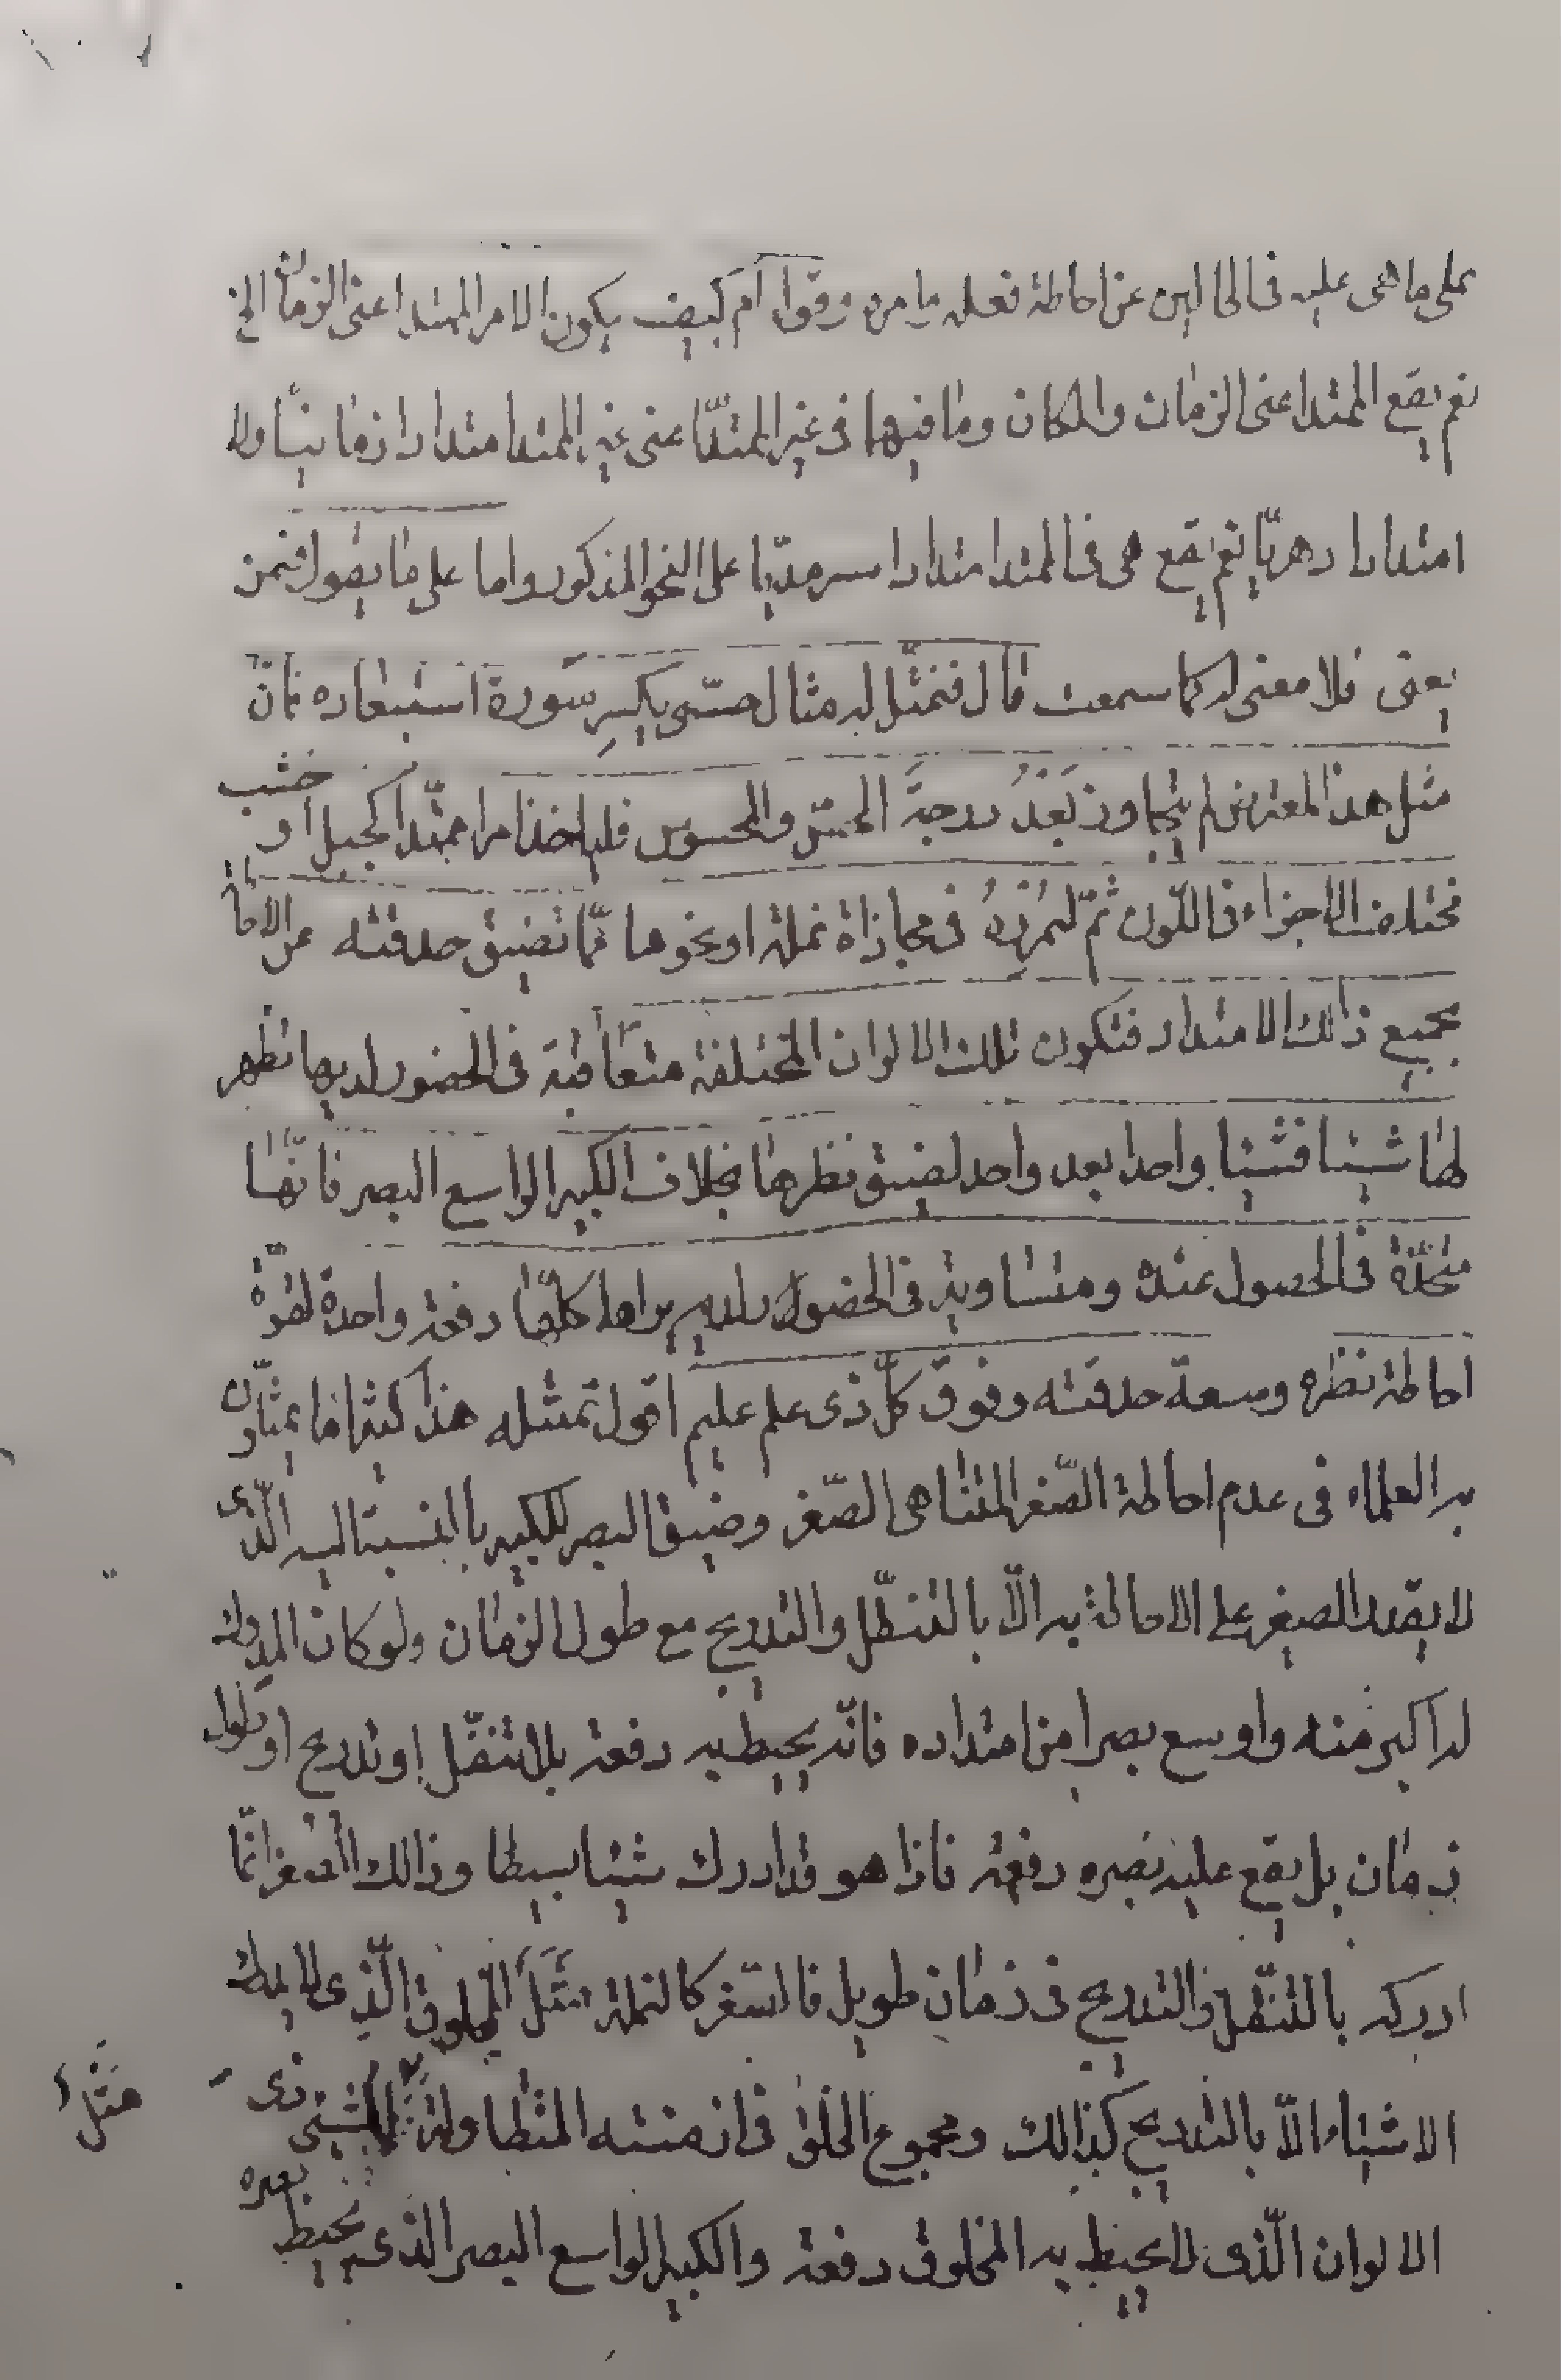 على ما هى عليه فى الحالين عن احاطة فعله بامره وقوله ام كيف يكون الامر الممتد اعنى الزمان الخ
نعم يقع الممتد اعنى الزمان والمكان وما فيها فى غير الممتدّ اعنى غير الممتد امتدادا زمانيّا وله
امتدادا دهريّا نعم يقع هى فى الممتد امتدادا سرمديّا على النحو المذكور واما على ما يقول فمن
يعنى فلا معنى له كما سمعت قال فنمثّل له مثال حسّى يكسِر سَورة استبعاده فانّ
مثل هذا المعترض لم يتجاوز بَعْدُ درجةَ الحسّ والمحسوس فلياخذ امرا ممتّدا كجبل او خشب
مختلف الاجزاء فى اللّون ثمّ ليُمرِرْهُ فى محاذاة نملة او نحوها ممّا تضيق حدقته عن الاحاطة
بجميع ذالك الامتداد فتكون تلك الالوان المختلفة متعاقبة فى الحضور لديها تظهر
لها شيئا فشيئا واحدا بعد واحد لضيق نظرها بخلاف الكبير الواسع البصر فانّها
متّحدّة فى الحصول عنده ومتساوية فى الحضور لديه يراها كلّها دفعة واحدة لقوّة
احاطة نظره وسعة حدقته وفوق كلّ ذى علم عليم اقول تمثيله هذا كثيرا ما يمثّلون
به العلماء فى عدم احاطة الصّغير المتناهى الصّغر وضيق البصر للكبير بالنسبة اليه الّذى
لا يقدر الصغير على الاحاطة به الّا بالتنقّل والتدريج مع طول الزمان ولو كان المدرك
له اكبر منه واوسع بصرا من امتداده فانّه يحيط به دفعة بلا تنقّل او تدريج او طول
زمان بل يقع عليه بصره دفعة فاذا هو قد ادرك شيئا بسيطا وذالك الصغير انّما
ادركه بالتنقّل والتدريج فى زمان طويل فالصّغير كالنملة مَثَلُ المخلوق الّذى لا يدرك
الاشياء الّا بالتدريج كذالك ومجموع الخلق فى ازمنته المتطاولة الشىء ذى
مَثَل
الالوان الّذى لا يحيط به المخلوق دفعة والكبير الواسع البصر الذى يحيط بصره